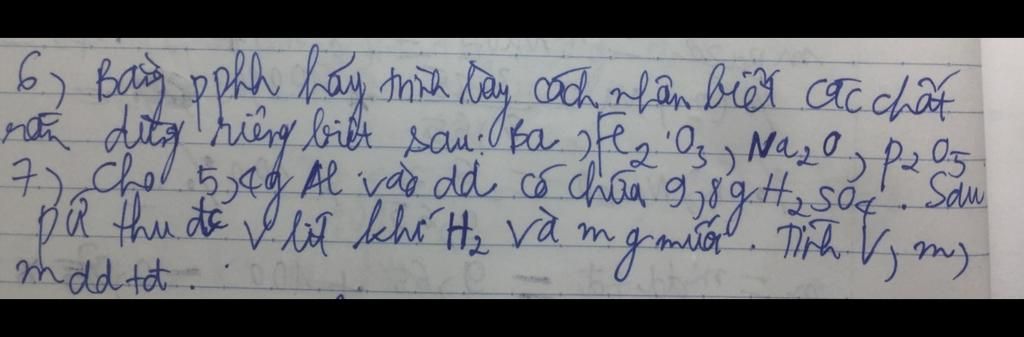 6, Bằng pphh hãy trình bày cách nhận biết các chất
rắn đựng riêng biệt sau: Ba, Fe₂O₃, Na₂O, P₂O₅
7, Cho 5,4g Al vào dd có chứa 9,8g H₂SO₄. Sau
pứ thu đc V lít khí H₂ và m g muối. Tính V, m,
m dd +d.